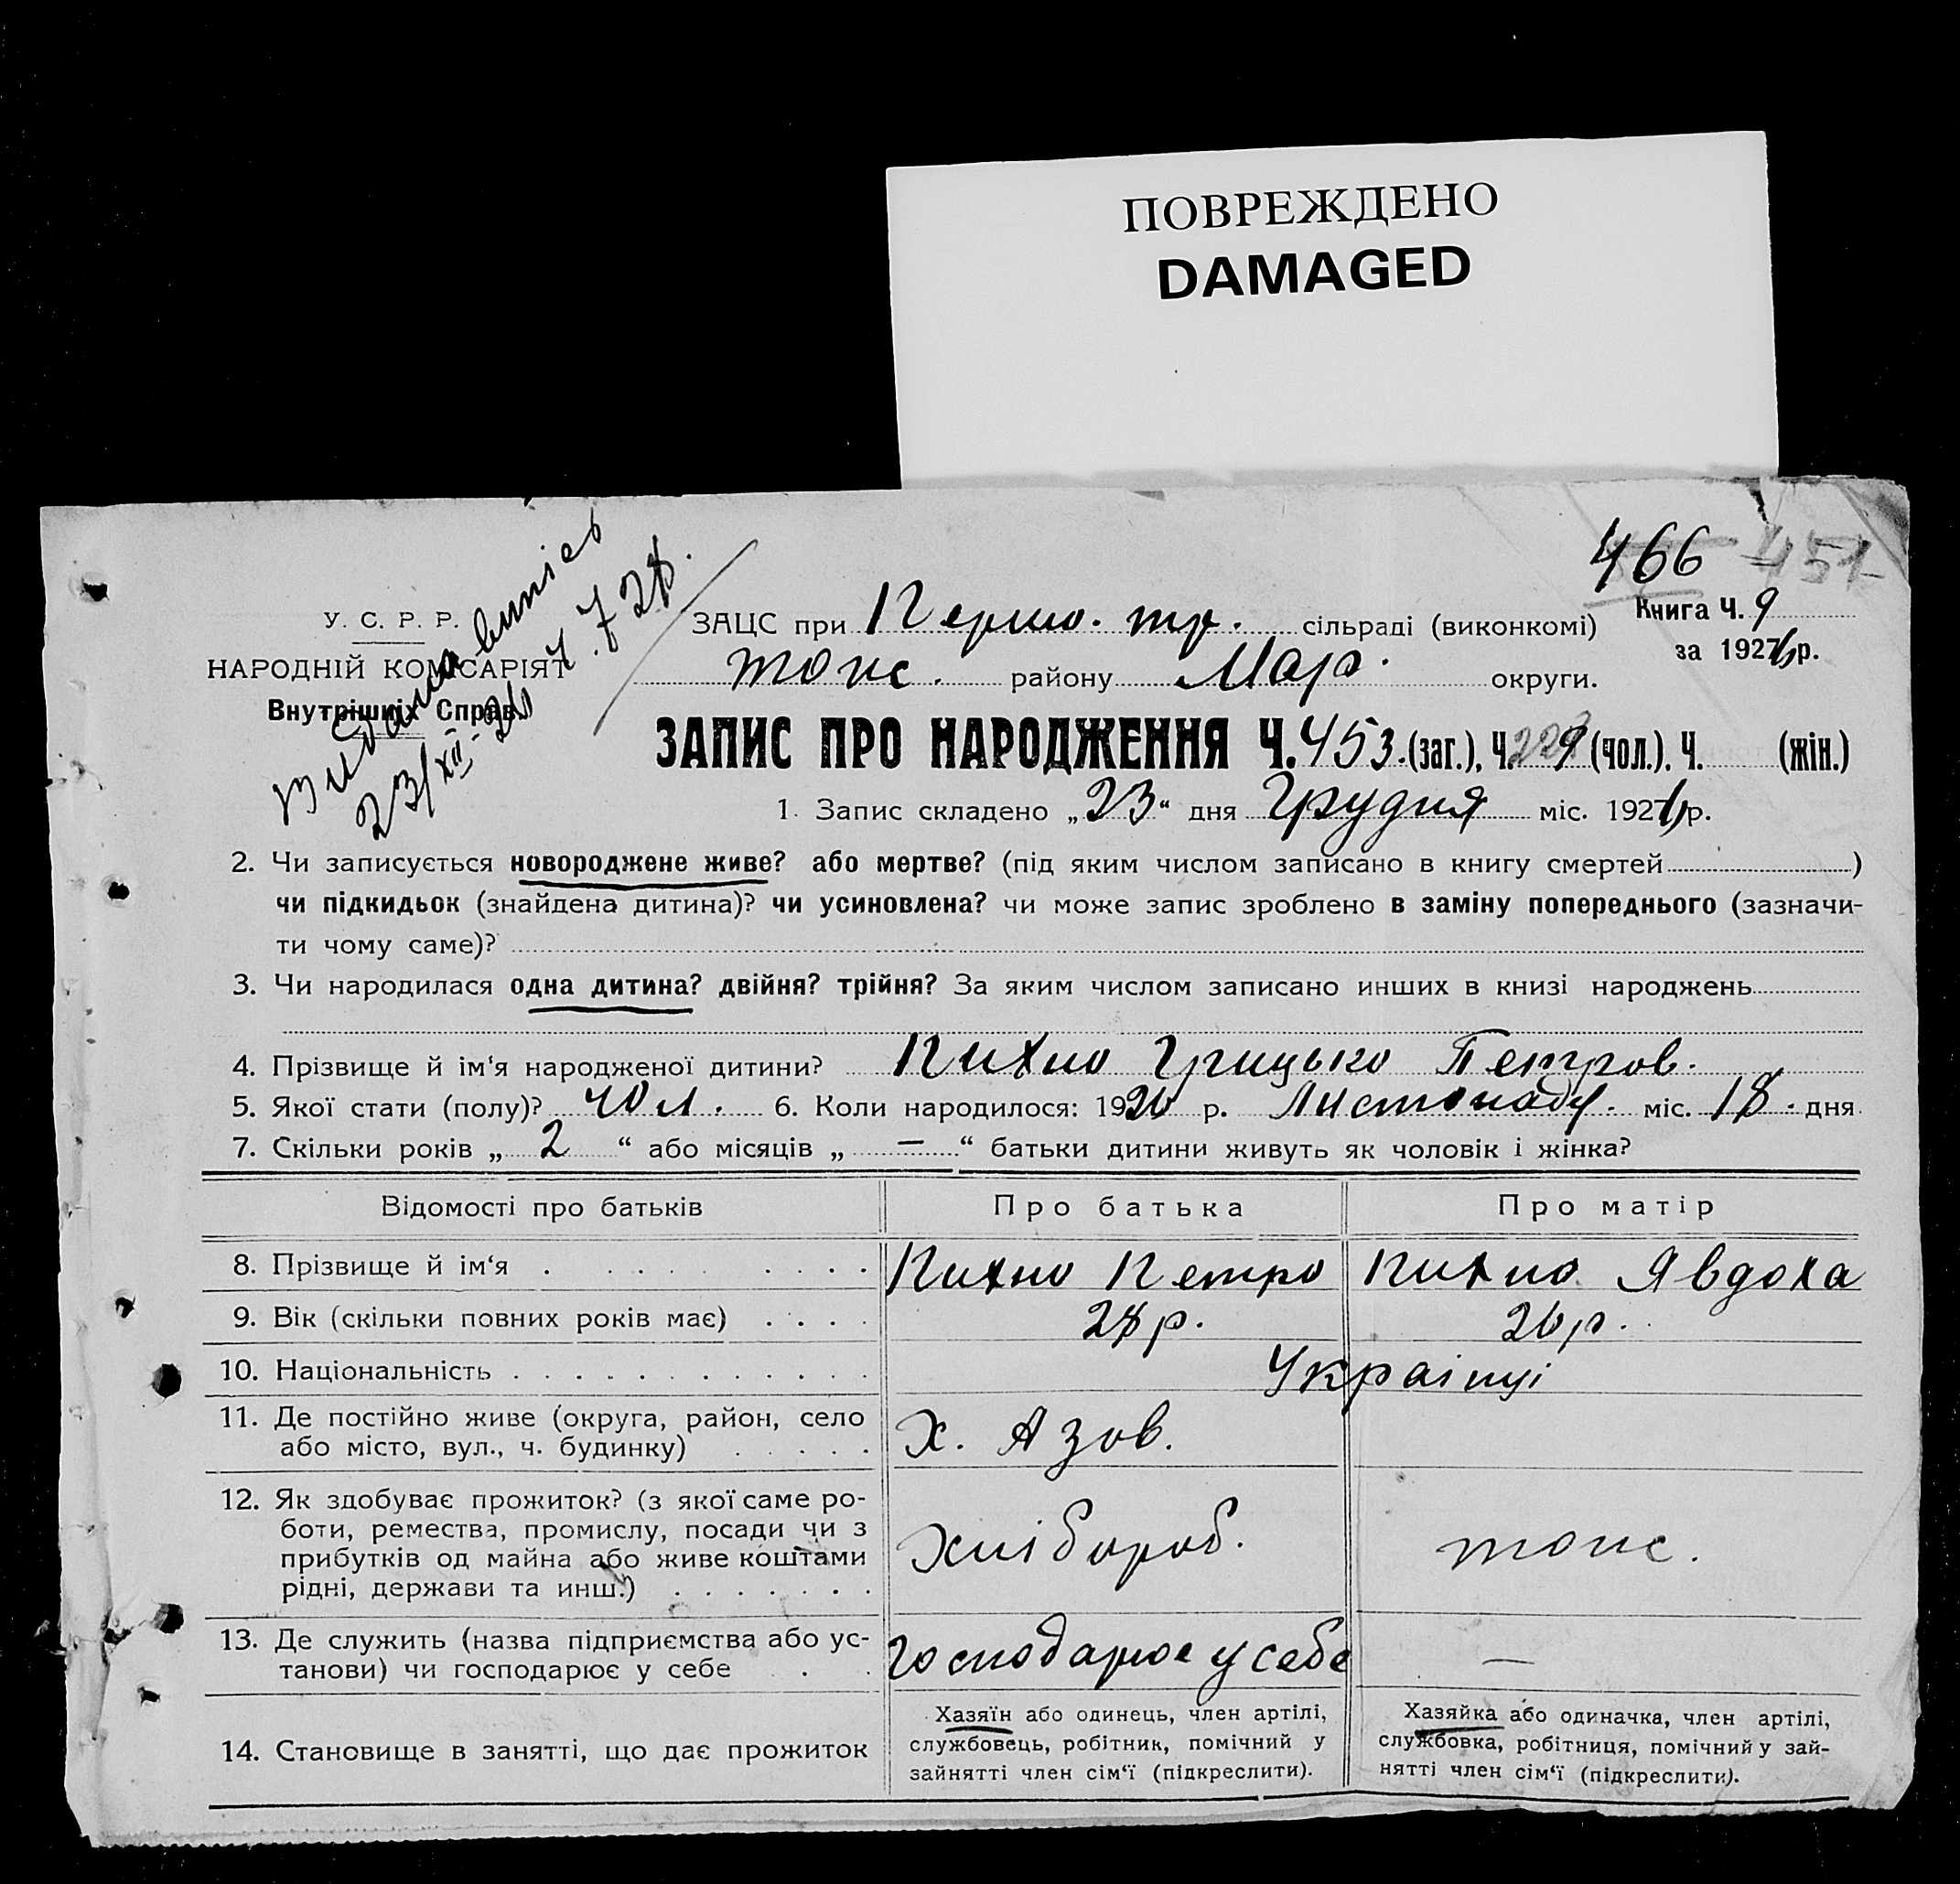 ПОВРЕЖДЕНО
DAMAGED
466 451
У. С. Р. Р.
НАРОДНІЙ КОМІСАРІЯТ
Внутрішніх Справ.
Видана випись
23/XII-26 ч. 728.
ЗАЦС при Першо. тр. сільраді (виконкомі)
Книга Ч. 9
за 1926 р.
тоже. району Мар. округи.
ЗАПИС ПРО НАРОДЖЕННЯ Ч. 453. (заг.), Ч. 229 (чол.). Ч. (жін.)
1. Запис складено „23“ дня Грудня міс. 1926 р.
2. Чи записується новороджене живе? або мертве? (під яким числом записано в книгу смертей )
чи підкидьок (знайдена дитина)? чи усиновлена? чи може запис зроблено в заміну попереднього (зазначи-
ти чому саме)?
3. Чи народилася одна дитина? двійня? трійня? За яким числом записано инших в книзі народжень
4. Прізвище й ім‘я народженої дитини? Пихно Грицько Петров.
5. Якої стати (полу)? чол. 6. Коли народилося: 1926 р. Листопаду. міс. 18. дня
7. Скільки років „ 2 “ або місяців „ — “ батьки дитини живуть як чоловік і жінка?
Відомості про батьків Про батька Про матір
8. Прізвище й ім‘я . . . . . . . . Пихно Петро Пихно Явдоха
9. Вік (скільки повних років має) . . . . 28 р. 26 р.
10. Національність . . . . . . . . . . . . . Українці
11. Де постійно живе (округа, район, село
або місто, вул., ч. будинку) . . . . . х. Азов.
12. Як здобуває прожиток? (з якої саме ро-
боти, ремества, промислу, посади чи з
прибутків од майна або живе коштами
рідні, держави та инш.) . . . . . . . Хлібороб. тоже.
13. Де служить (назва підприємства або ус-
танови) чи господарює у себе . . господарює у себе —
14. Становище в занятті, що дає прожиток
Хазяїн або одинець, член артілі,
службовець, робітник, помічний у
зайнятті член сім‘ї (підкреслити).
Хазяйка або одиначка, член артілі,
службовка, робітниця, помічний у зай-
нятті член сім‘ї (підкреслити).